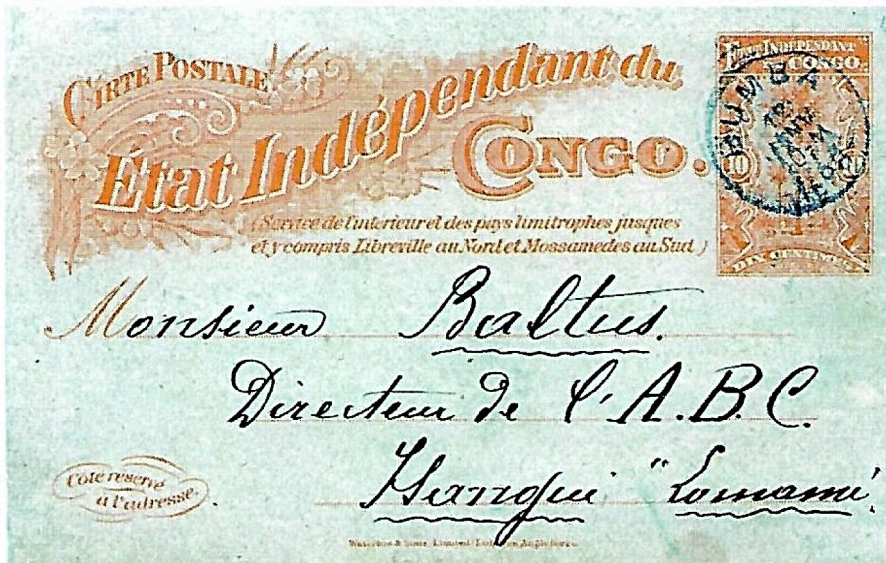 CARTE POSTALE
État Indépendant du
CONGO.
(Service de l'intérieur et des pays limitrophes jusques
et y compris Libreville au Nord et Mossamedes au Sud)
ETAT INDÉPENDANT
DU CONGO.
BUMBA
10
DIX CENTIMES
Monsieur Baltus.
Directeur de l'A.B.C.
Isangui "Lomami
Côté réservé
à l'adresse.
Waterlow & Sons Limited